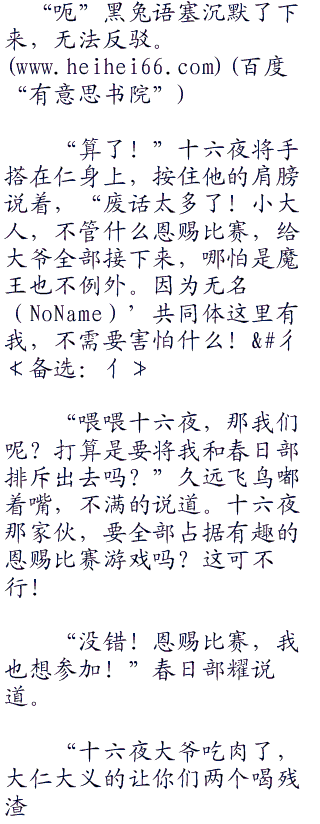 “呃”黑兔语塞沉默了下
来，无法反驳。
(www.heihei66.com)(百度
“有意思书院”)
“算了！”十六夜将手
搭在仁身上，按住他的肩膀
说着，“废话太多了！小大
人，不管什么恩赐比赛，给
大爷全部接下来，哪怕是魔
王也不例外。因为无名
（NoName）’共同体这里有
我，不需要害怕什么！&#彳
≮备选：亻≯
“喂喂十六夜，那我们
呢？打算是要将我和春日部
排斥出去吗？”久远飞鸟嘟
着嘴，不满的说道。十六夜
那家伙，要全部占据有趣的
恩赐比赛游戏吗？这可不
行！
“没错！恩赐比赛，我
也想参加！”春日部耀说
道。
“十六夜大爷吃肉了，
大仁大义的让你们两个喝残
渣